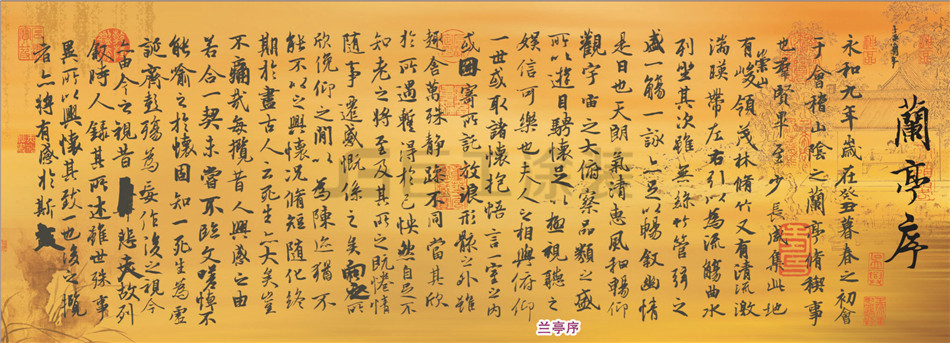 蘭亭序
永和九年歲在癸丑暮春之初會
于會稽山陰之蘭亭脩稧事
也羣賢畢至少長咸集此地
有崇山峻領茂林脩竹又有清流激
湍暎帶左右引以為流觴曲水
列坐其次雖無絲竹管弦之
盛一觴一詠亦足以暢敘幽情
是日也天朗氣清惠風和暢仰
觀宇宙之大俯察品類之盛
所以遊目騁懷足以極視聽之
娛信可樂也夫人之相與俯仰
一世或取諸懷抱悟言一室之內
或因寄所託放浪形骸之外雖
趣舍萬殊靜躁不同當其欣
於所遇暫得於己怏然自足不
知老之將至及其所之既惓情
隨事遷感慨係之矣向之所
欣俛仰之閒以為陳迹猶不
能不以之興懷況脩短隨化終
期於盡古人云死生亦大矣豈
不痛哉每攬昔人興感之由
若合一契未嘗不臨文嗟悼不
能喻之於懷固知一死生為虛
誕齊彭殤為妄作後之視今
亦由今之視昔悲夫故列
敘時人錄其所述雖世殊事
異所以興懷其致一也後之攬
者亦將有感於斯文
兰亭序